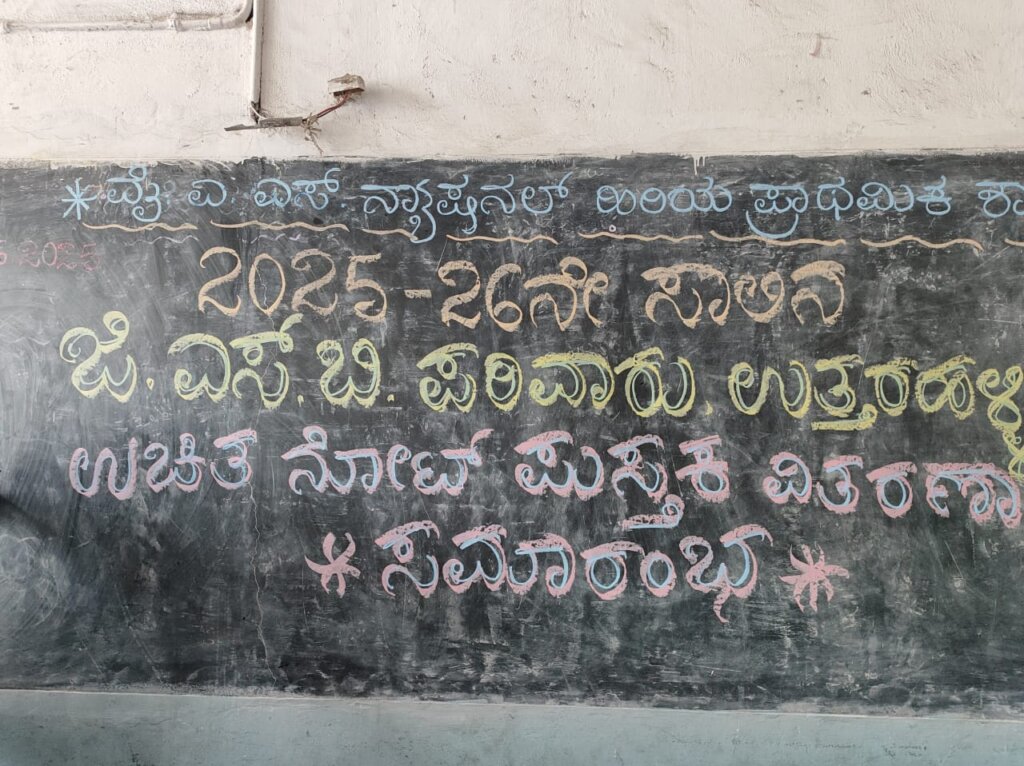 * ವೈ. ಎ. ಎಸ್. ನ್ಯಾಷನಲ್ ಹಿರಿಯ ಪ್ರಾಥಮಿಕ ಶಾ
2025-26ನೇ ಸಾಲಿನ
ಜೆ. ಎಸ್. ಬಿ. ಪರಿವಾರು, ಉತ್ತರಹಳ್ಳಿ
ಉಚಿತ ನೋಟ್ ಪುಸ್ತಕ ವಿತರಣಾ
* ಸಮಾರಂಭ *